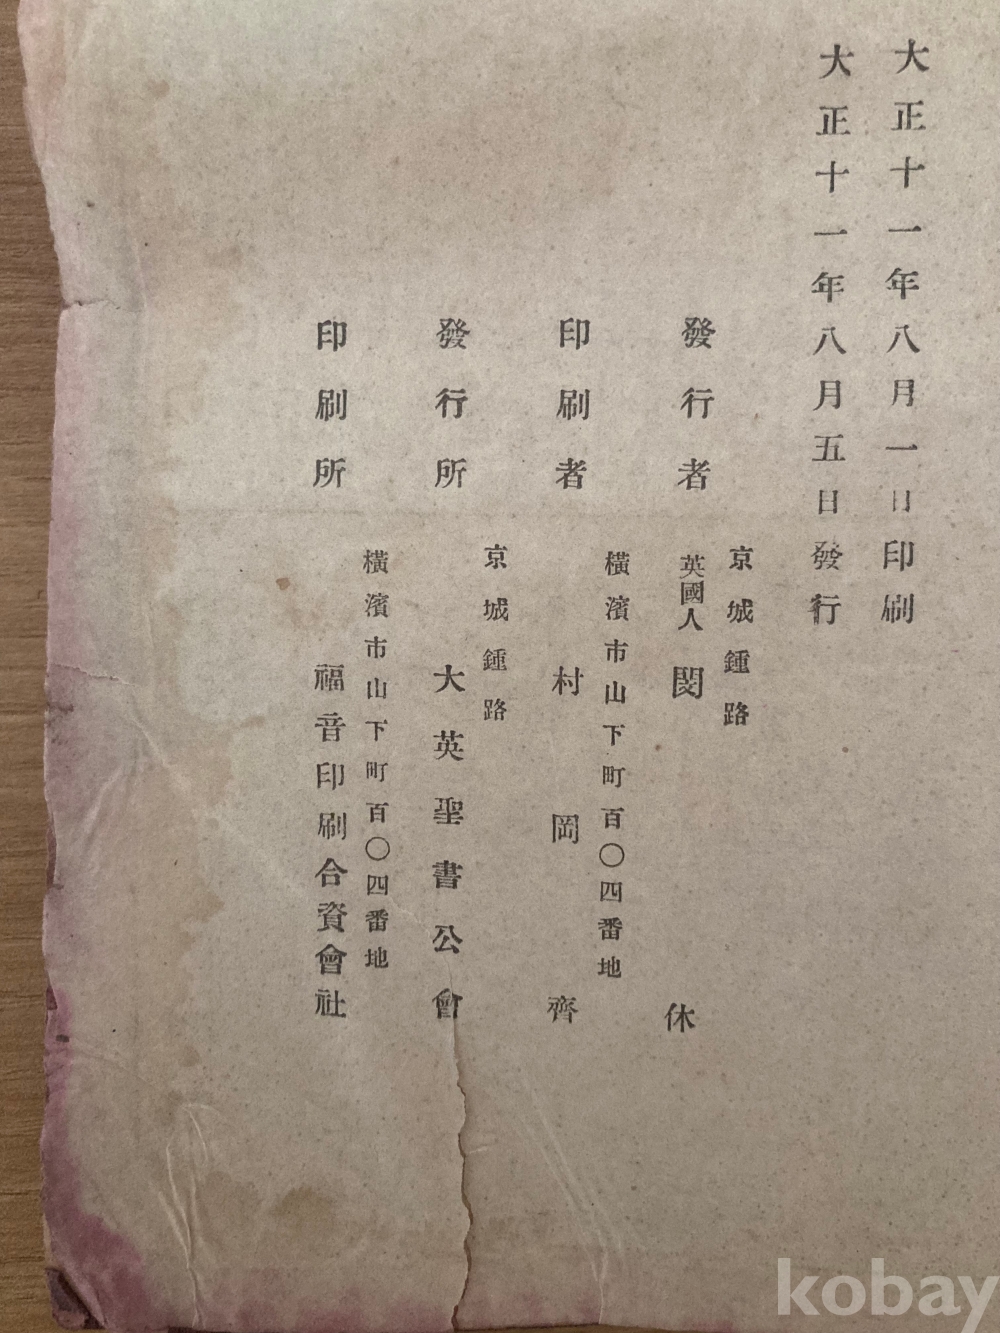 大正十一年八月一日印刷
大正十一年八月五日發行
京城鍾路
發行者 英國人 閔休
橫濱市山下町百〇四番地
印刷者 村岡齊
京城鍾路
發行所 大英聖書公會
橫濱市山下町百〇四番地
印刷所 福音印刷合資會社
kobay